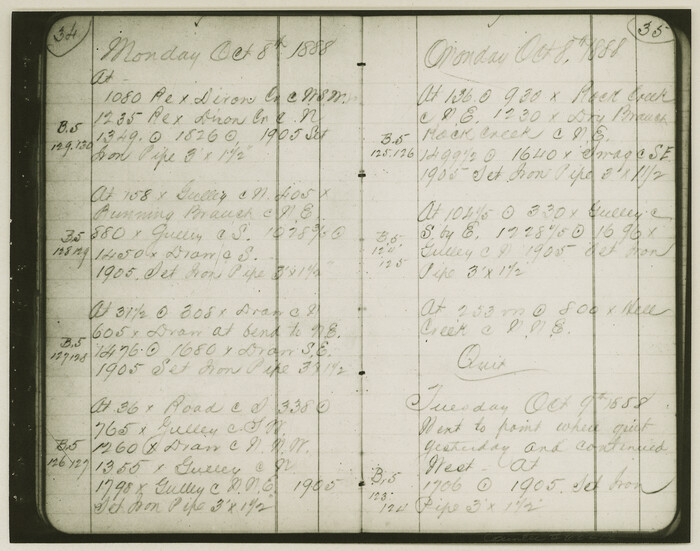 34
Monday Oct 8th 1888
At -
1080 Re x Dixon Cr c N & W.
1235 Re x Dixon Cr c N
1349. ⊙ 1826 ⊙ 1905 Set
Iron Pipe 3' x 1½"
B.5
129.130
At 158 x Gulley c N. 405 x
Running Branch c N.E.
880 x Gulley c S. ⊙
1450 x Draw c S.
1905. Set Iron Pipe 3' x 1½
B.5
128 129
At 31½ ⊙ 305 x Draw c N
605 x Draw at bend to N.E.
1476 ⊙ 1680 x Draw S.E.
1905 Set Iron Pipe 3' x 1½
B.5
127 128
At 36 x Road c S 338 ⊙
765 x Gulley c S.W.
1260 x Draw c N.N.W.
1355 x Gulley c N
1798 x Gulley c N.N.E. 1905
Set Iron Pipe 3' x 1½"
B.5
126 127
35
Monday Oct 8th 1888
At 136 ⊙ 930 x Rock Creek
c N.E. 1230 x Dry Branch
Rock Creek c N.E.
1499½ ⊙ 1640 x Swag c S.E
1905 Set Iron Pipe 3' x 1½
B.5
125.126
At 104⅘ ⊙ 330 x Gulley c
S. by E. 1228⅘ ⊙ 1696 x
Gulley c N 1905 Set Iron
Pipe 3' x 1½
B.5
124
125
At 233 ⊙ 800 x Hell
Creek c N.N.E.
Quit
Tuesday Oct 9th 1888
Went to point where quit
yesterday and continued
West - At
1706 ⊙ 1905. Set Iron
Pipe 3' x 1½"
B.5
123.
124